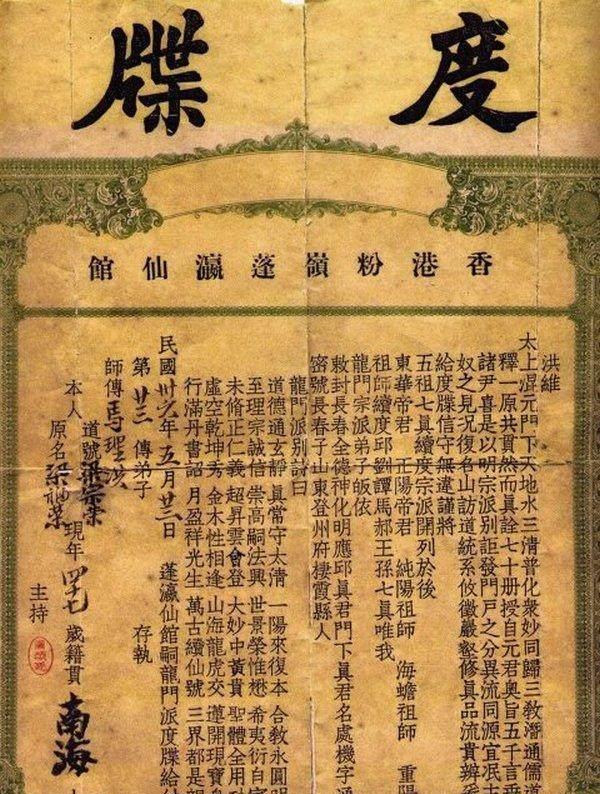 度牒
香港粉嶺蓬瀛仙館
洪維
太上混元門下天地水三清普化衆妙同歸三敎濳通儒道
釋一原共貫然而眞詮七十册授自元君奧旨五千言垂
諸尹喜是以明宗派別詎發門戶之分異流同源宜泯主
奴之見況復名山訪道統系攸徵嚴壑修眞品流貴辨爰
給度牒信守無違謹將
五祖七眞續度宗派開列於後
東華帝君 正陽帝君 純陽祖師 海蟾祖師 重陽
祖師續度邱劉譚馬郝王孫七眞唯我
龍門宗派弟子皈依
敕封長春全德神化明應邱眞君門下眞君名處機字通
密號長春子山東登州府棲霞縣人
龍門派別詩曰
道德通玄靜 眞常守太淸 一陽來復本 合敎永圓明
至理宗誠信 崇高嗣法興 世景榮惟懋 希夷衍自
未脩正仁義 超昇雲會登 大妙中黃貴 聖體全用
虛空乾坤秀 金木性相逢 山海龍虎交 蓮開現寶身
行滿丹書詔 月盈祥光生 萬古續仙號 三界都是親
民國卅六年五月廿二日 蓬瀛仙館嗣龍門派度牒給付
第廿三傳弟子 存執
師傳馬聖
道號梁宗榮
本人 現年四十七歲籍貫南海
原名梁福榮
主持